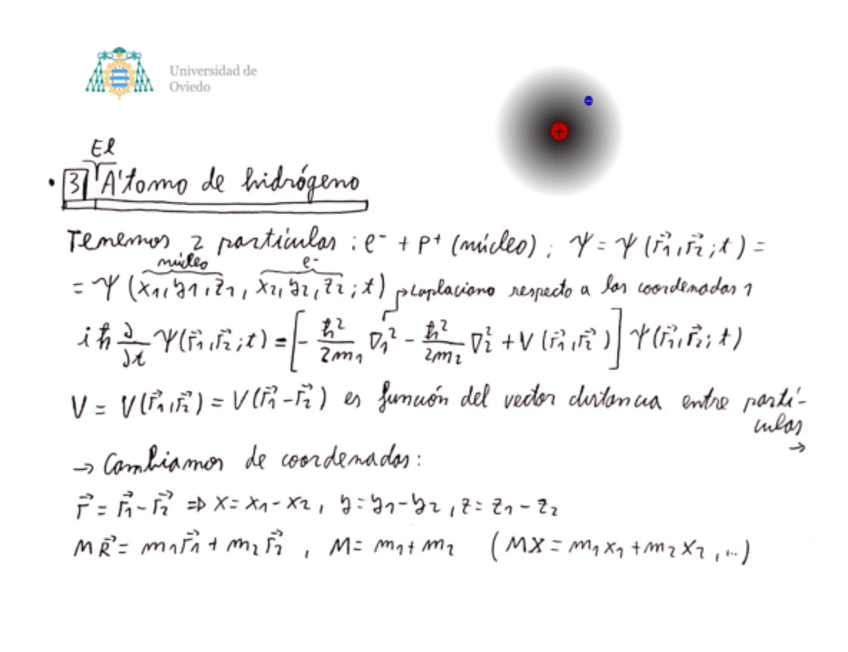 Universidad de
Oviedo
El
• 3 Átomo de hidrógeno
Tenemos 2 partículas : e⁻ + p⁺ (núcleo) ; Ψ = Ψ (r⃗₁, r⃗₂ ; t) =
núcleo e⁻
= Ψ (x₁, y₁, z₁, x₂, y₂, z₂ ; t) → Laplaciano respecto a las coordenadas 1
iħ ∂/∂t Ψ(r⃗₁, r⃗₂ ; t) = [ - ħ²/2m₁ ∇₁² - ħ²/2m₂ ∇₂² + V (r⃗₁, r⃗₂) ] Ψ(r⃗₁, r⃗₂ ; t)
V = V(r⃗₁, r⃗₂) = V(r⃗₁ - r⃗₂) es función del vector distancia entre partí-
culas
→
→ Cambiamos de coordenadas :
r⃗ = r⃗₁ - r⃗₂ ⇒ x = x₁ - x₂ , y = y₁ - y₂ , z = z₁ - z₂
M R⃗ = m₁ r⃗₁ + m₂ r⃗₂ , M = m₁ + m₂ (MX = m₁x₁ + m₂x₂ , ...)